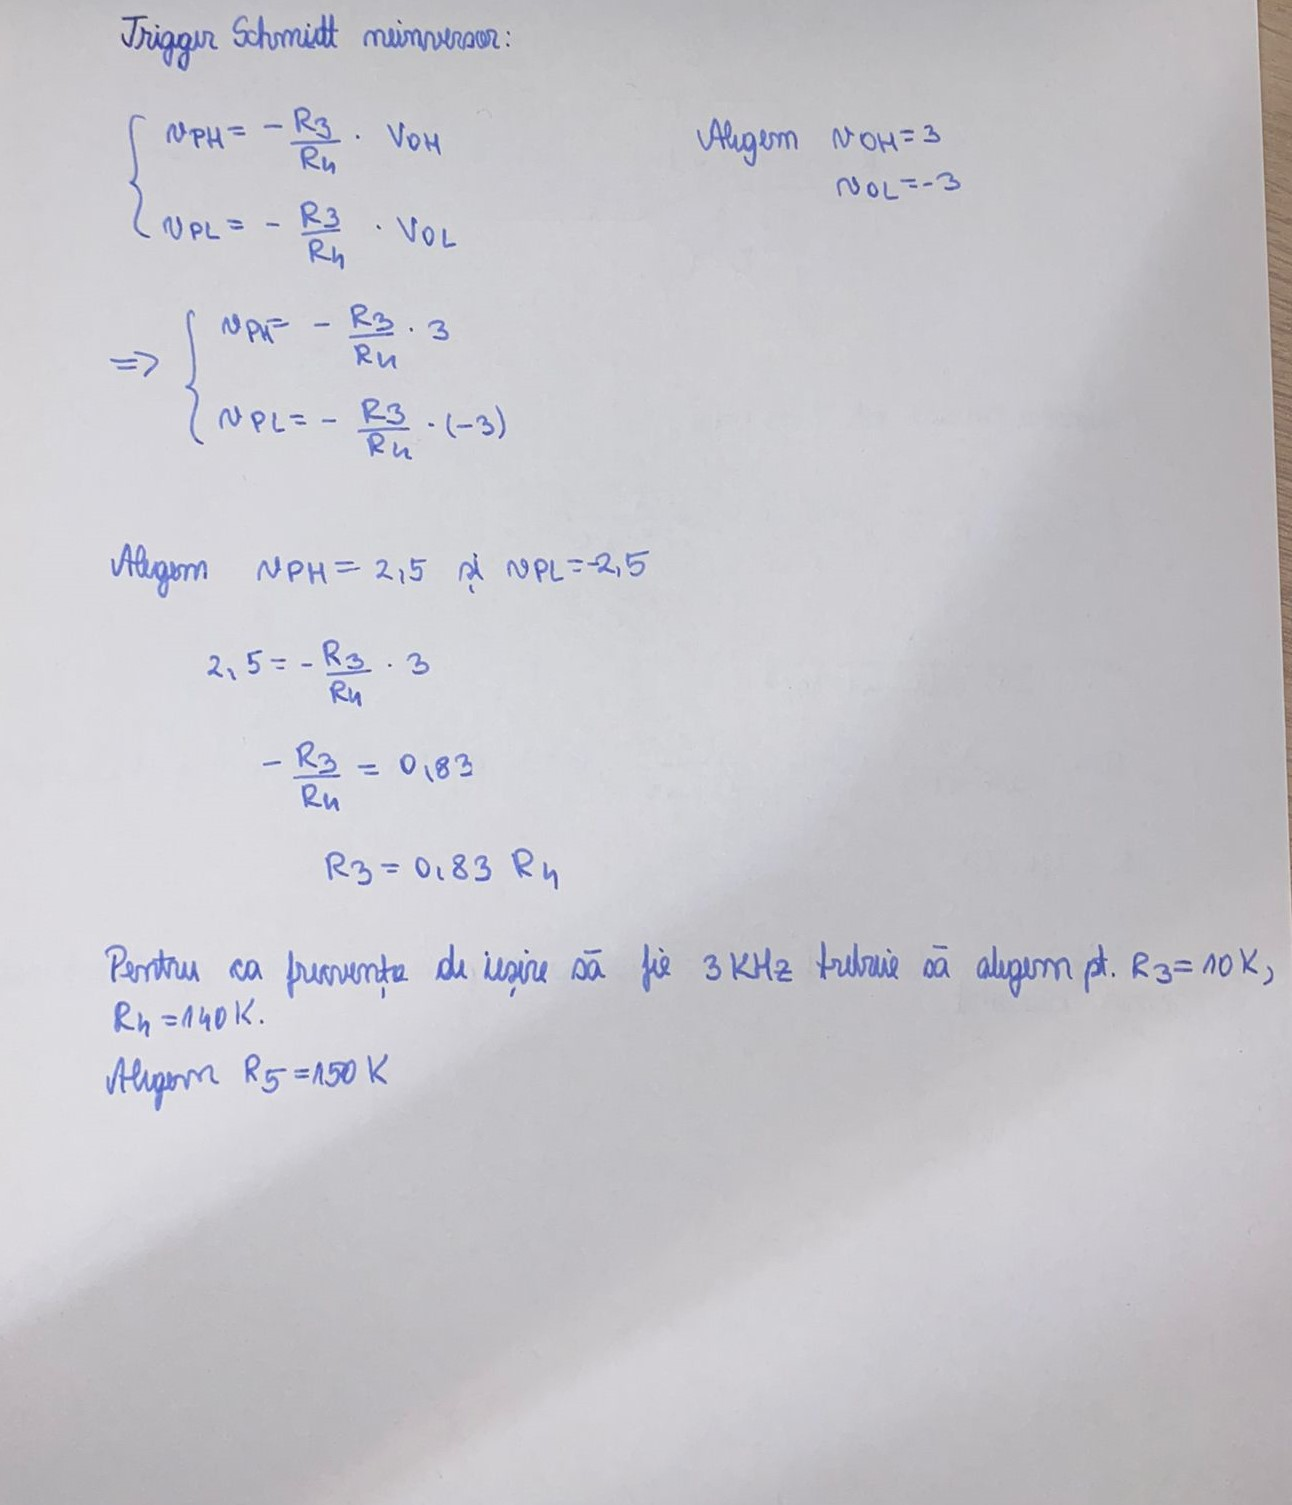 Trigger Schmidt neinversor:
VPH = - R3/R4 · VOH
Alegem VOH = 3
VOL = -3
VPL = - R3/R4 · VOL
=> VPH = - R3/R4 · 3
VPL = - R3/R4 · (-3)
Alegem VPH = 2,5 și VPL = -2,5
2,5 = - R3/R4 · 3
- R3/R4 = 0,83
R3 = 0,83 R4
Pentru ca frecvența de ieșire să fie 3 KHz trebuie să alegem pt. R3 = 10K,
R4 = 140K.
Alegem R5 = 150 K